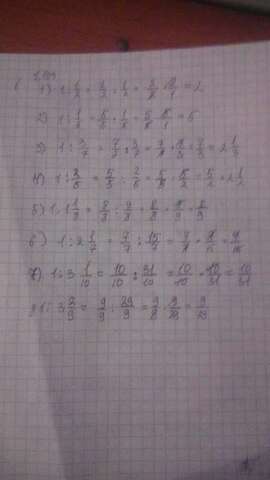 1) 1 : 1/2 = 2/2 : 1/2 = 2/2 · 2/1 = 2
2) 1 : 1/5 = 5/5 : 1/5 = 5/5 · 5/1 = 5
3) 1 : 3/7 = 7/7 : 3/7 = 7/7 · 7/3 = 7/3 = 2 1/3
4) 1 : 2/5 = 5/5 : 2/5 = 5/5 · 5/2 = 5/2 = 2 1/2
5) 1 : 1 1/8 = 8/8 : 9/8 = 8/8 · 8/9 = 8/9
6) 1 : 2 1/7 = 7/7 : 15/7 = 7/7 · 7/15 = 7/15
7) 1 : 3 1/10 = 10/10 : 31/10 = 10/10 · 10/31 = 10/31
1 : 3 2/9 = 9/9 : 29/9 = 9/9 · 9/29 = 9/29